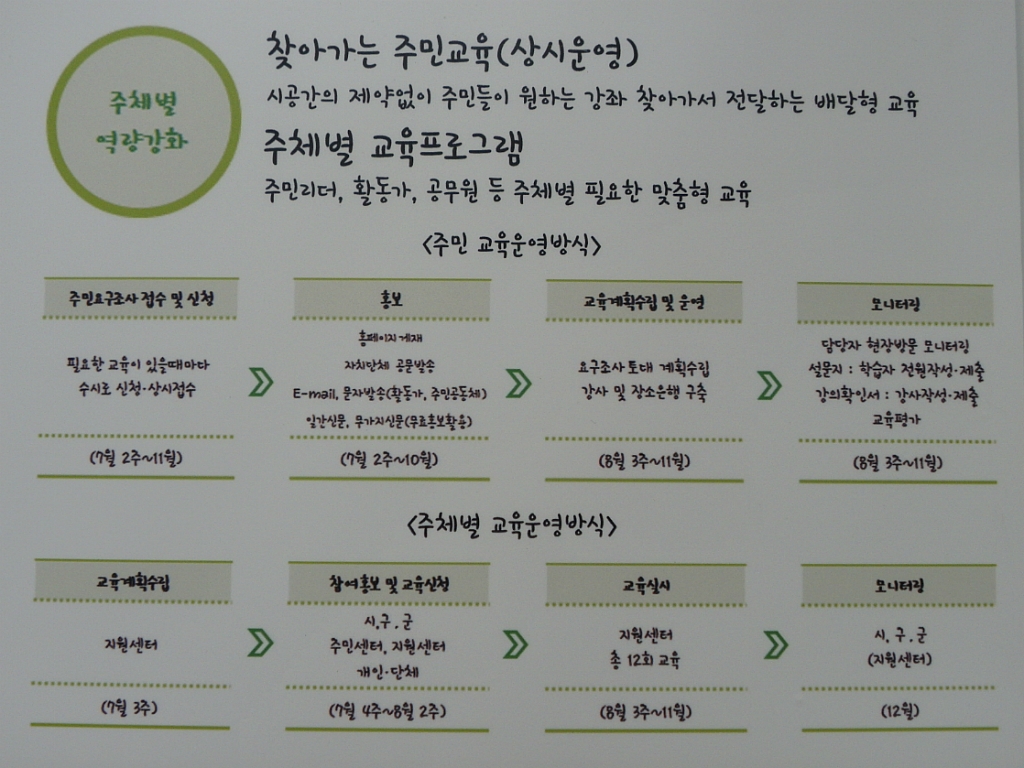 주체별
역량강화
찾아가는 주민교육(상시운영)
시공간의 제약없이 주민들이 원하는 강좌 찾아가서 전달하는 배달형 교육
주체별 교육프로그램
주민리더, 활동가, 공무원 등 주체별 필요한 맞춤형 교육
<주민 교육운영방식>
주민요구조사 접수 및 신청
필요한 교육이 있을때마다
수시로 신청·상시접수
(7월 2주~11월)
홍보
홈페이지 게재
자치단체 공문발송
E-mail, 문자발송(활동가, 주민공동체)
일간신문, 무가지신문(무료홍보활용)
(7월 2주~10월)
교육계획수립 및 운영
요구조사 토대 계획수립
강사 및 장소은행 구축
(8월 3주~11월)
모니터링
담당자 현장방문 모니터링
설문지 : 학습자 전원작성·제출
강의확인서 : 강사작성·제출
교육평가
(8월 3주~11월)
<주체별 교육운영방식>
교육계획수립
지원센터
(7월 3주)
참여홍보 및 교육신청
시,구.군
주민센터, 지원센터
개인·단체
(7월 4주~8월 2주)
교육실시
지원센터
총 12회 교육
(8월 3주~11월)
모니터링
시, 구.군
(지원센터)
(12월)